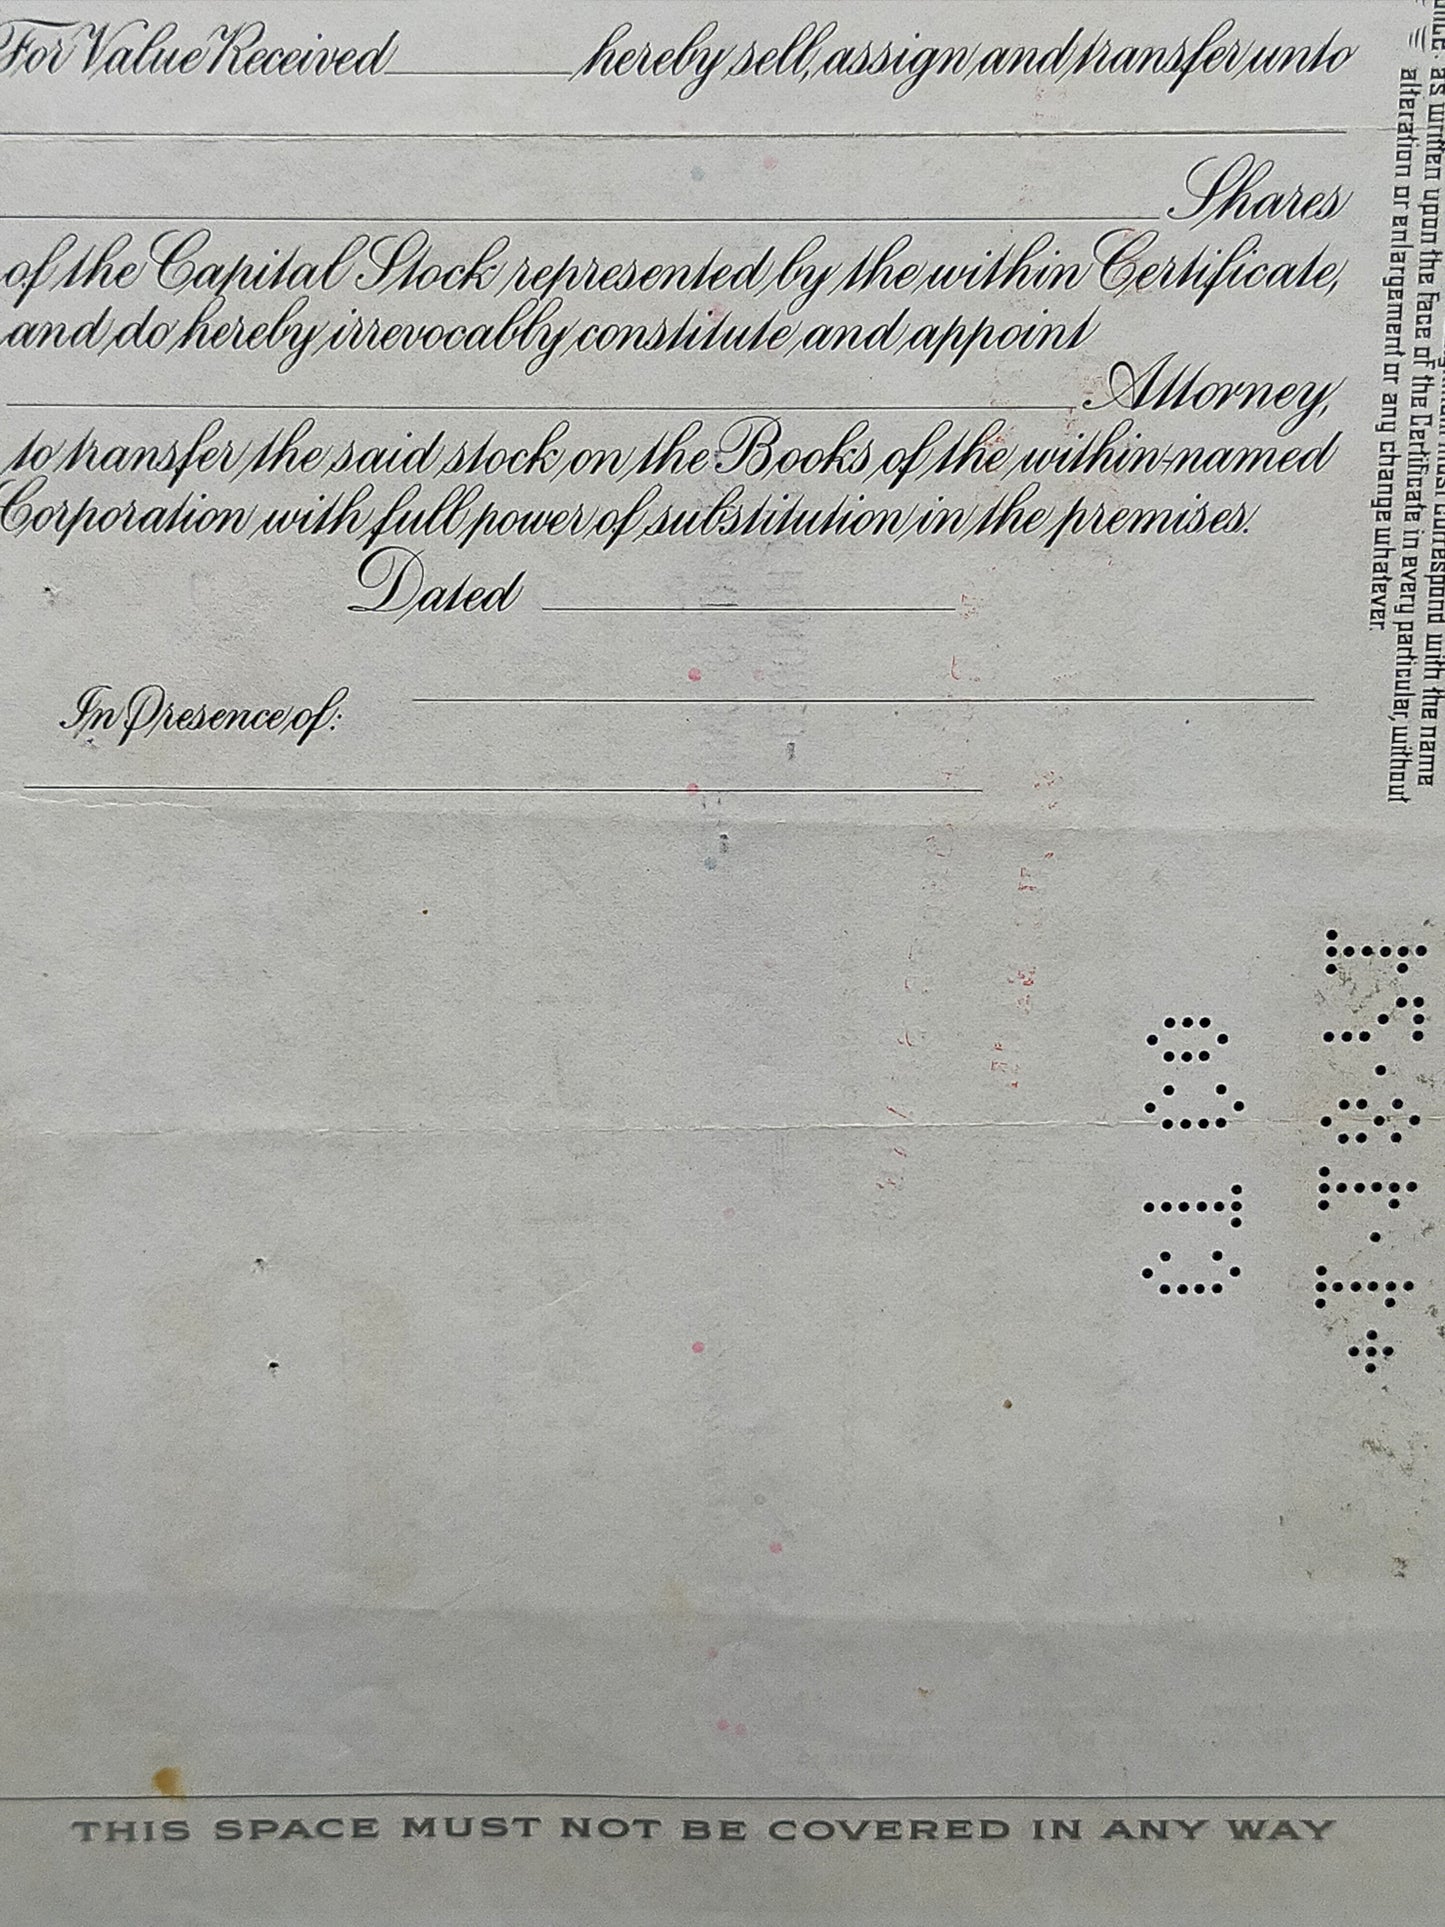 For Value Received hereby sell, assign and transfer unto
Shares
of the Capital Stock represented by the within Certificate,
and do hereby irrevocably constitute and appoint
Attorney,
to transfer the said stock on the Books of the within-named
Corporation with full power of substitution in the premises.
Dated
In Presence of:
must correspond with the name
as written upon the face of the Certificate in every particular, without
alteration or enlargement or any change whatever.
THIS SPACE MUST NOT BE COVERED IN ANY WAY